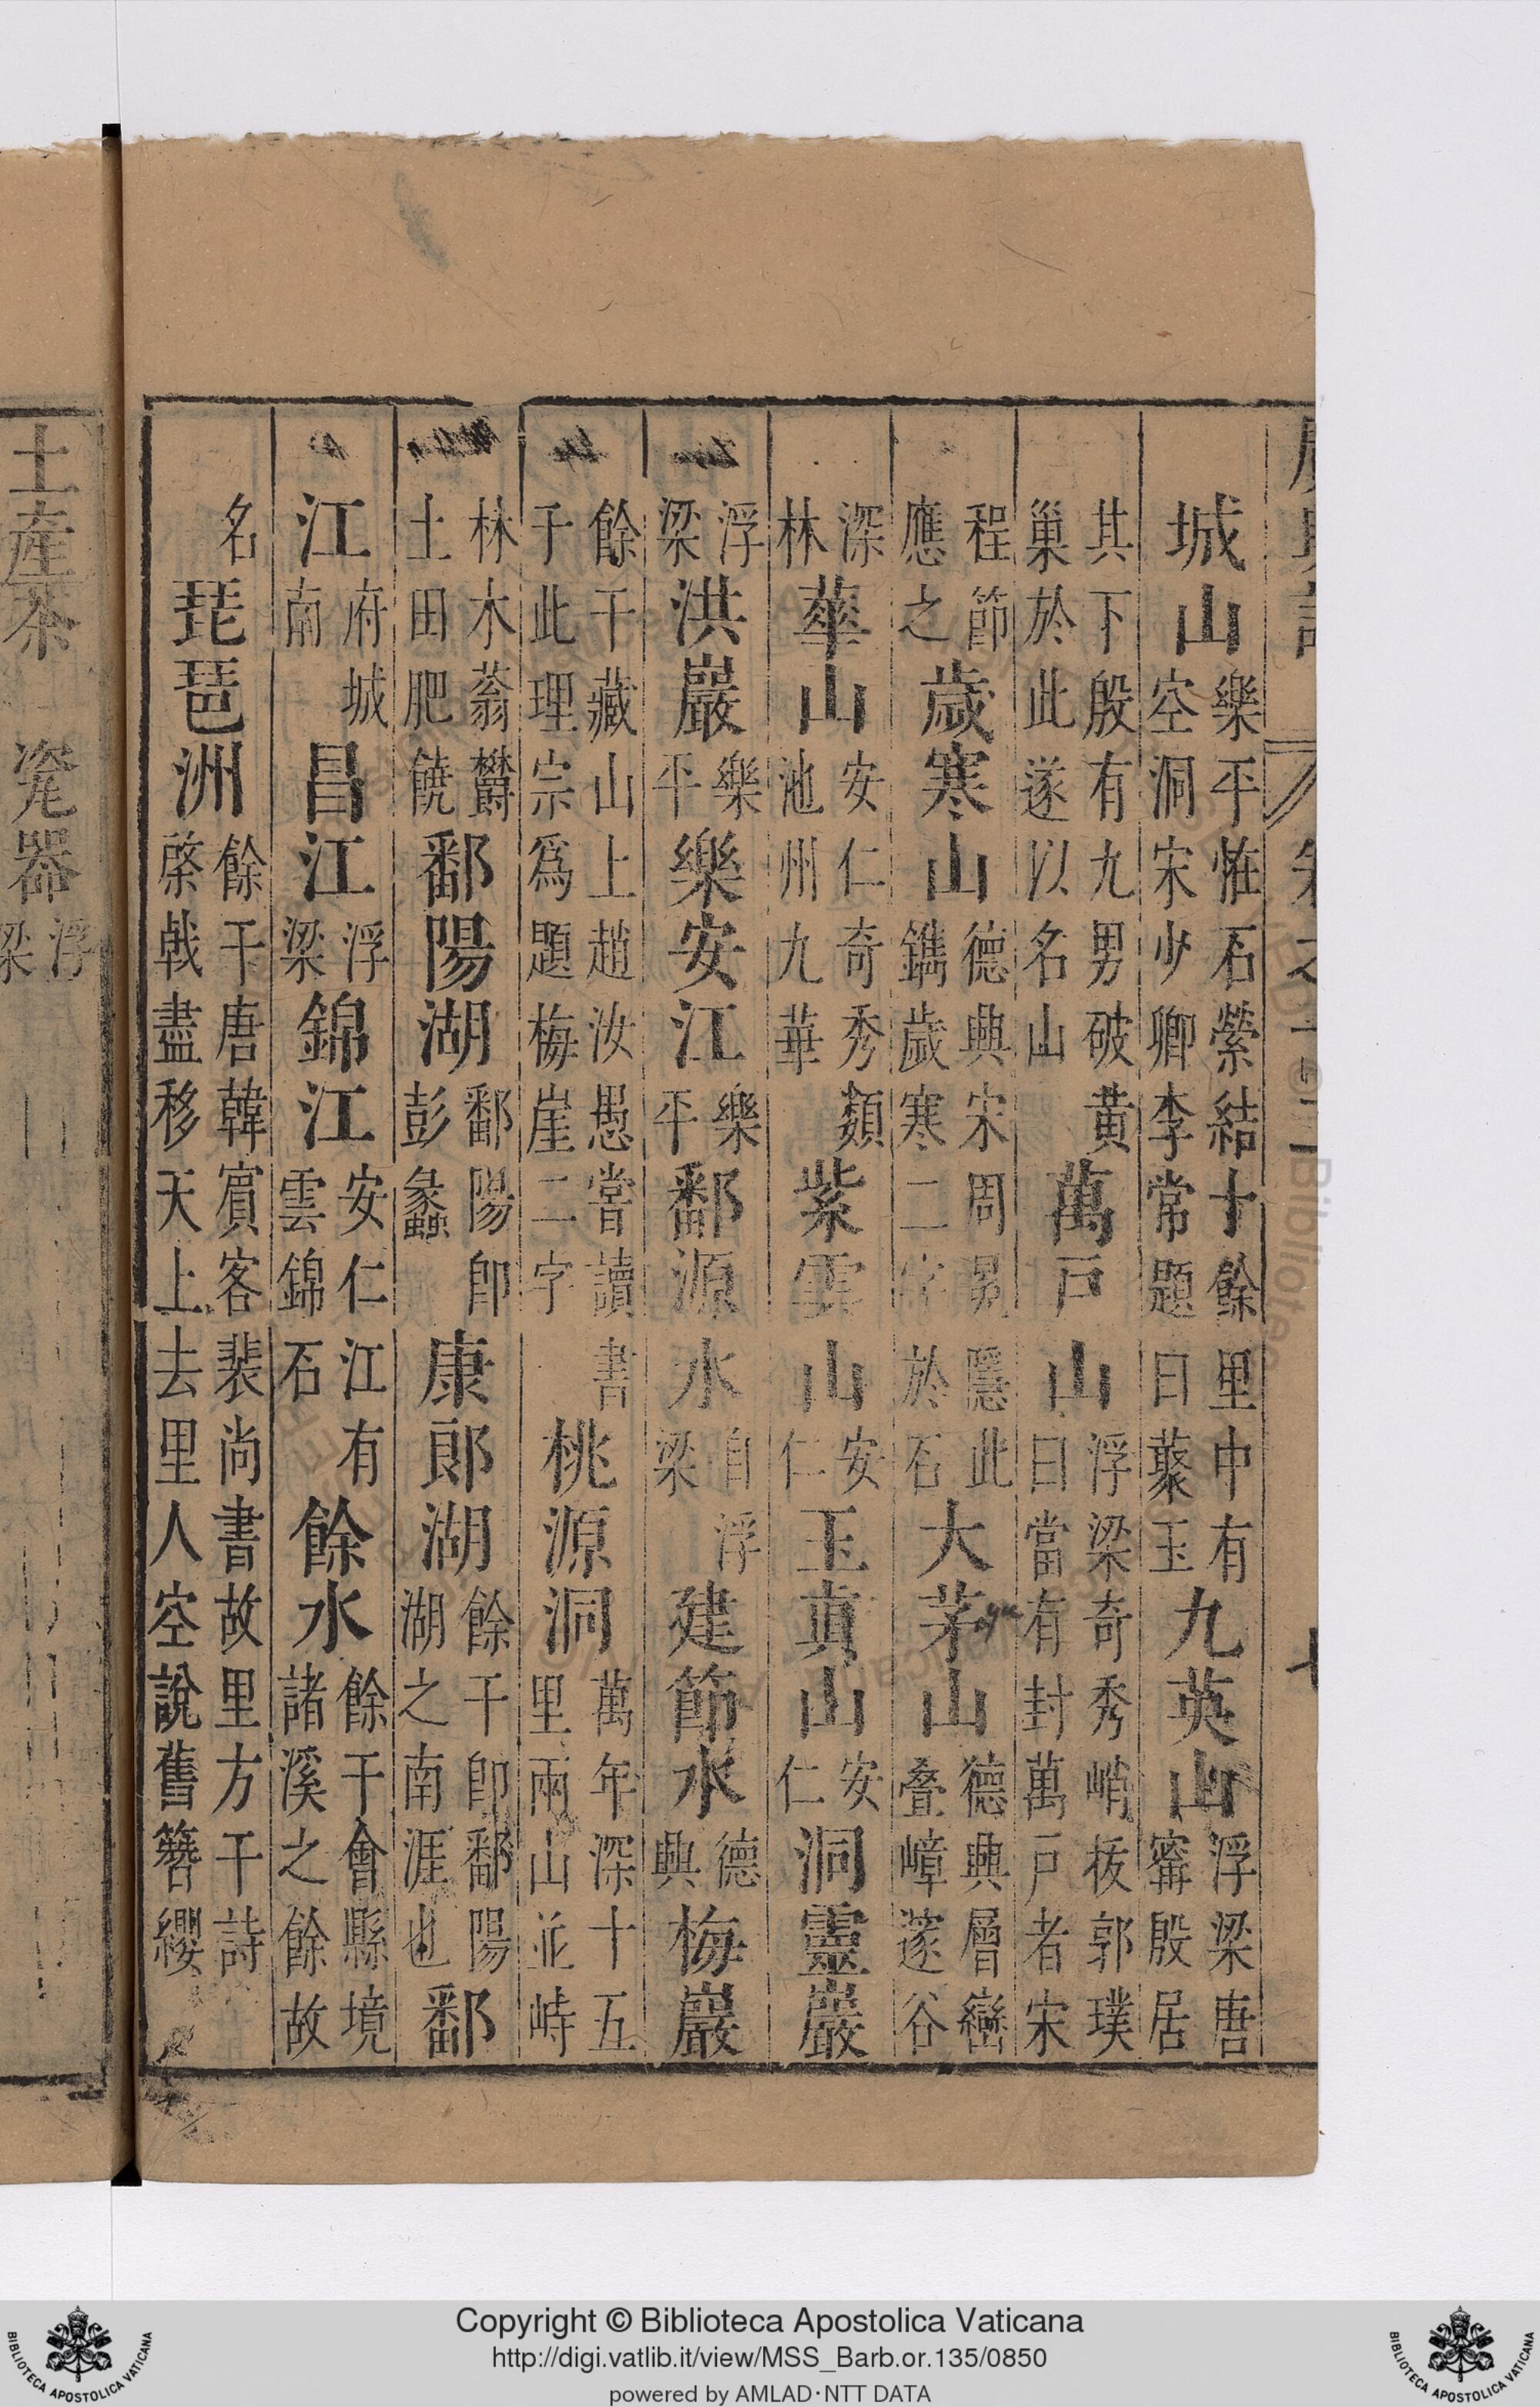 城山樂平恠石縈結十餘里中有空洞宋少卿李常題曰藂玉九英山浮梁唐寗殷居
其下殷有九男破黄巢於此遂以名山萬戸山浮梁奇秀峭拔郭璞曰當有封萬戸者宋
程節應之歲寒山德興宋周昜隱此鐫歲寒二字於石大茅山德興層巒叠嶂邃谷
深林華山安仁奇秀類池州九華紫雲山安仁玉眞山安仁洞靈巖
浮梁洪巖樂平樂安江樂平鄱源水自浮梁建節水德興梅巖
餘干藏山上趙汝愚嘗讀書于此理宗爲題梅崖二字桃源洞萬年深十五里兩山並峙
林木蓊欝土田肥饒鄱陽湖鄱陽卽彭蠡康郎湖餘干卽鄱陽湖之南涯也鄱
江府城南昌江浮梁錦江安仁江有雲錦石餘水餘干會縣境諸溪之餘故
名琵琶洲餘干唐韓賔客裴尚書故里方干詩棨戟盡移天上去里人空說舊簪纓
土産茶 瓷器浮梁
Copyright © Biblioteca Apostolica Vaticana
http://digi.vatlib.it/view/MSS_Barb.or.135/0850
powered by AMLAD·NTT DATA
BIBLIOTECA APOSTOLICA VATICANA
BIBLIOTECA APOSTOLICA VATICANA